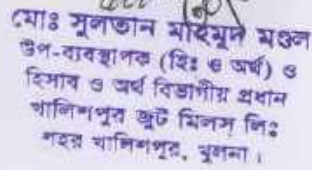 মোঃ সুলতান মাহমুদ মণ্ডল
উপ-ব্যবস্থাপক (হিঃ ও অর্থ) ও
হিসাব ও অর্থ বিভাগীয় প্রধান
খালিশপুর জুট মিলস্ লিঃ
শহর খালিশপুর, খুলনা।